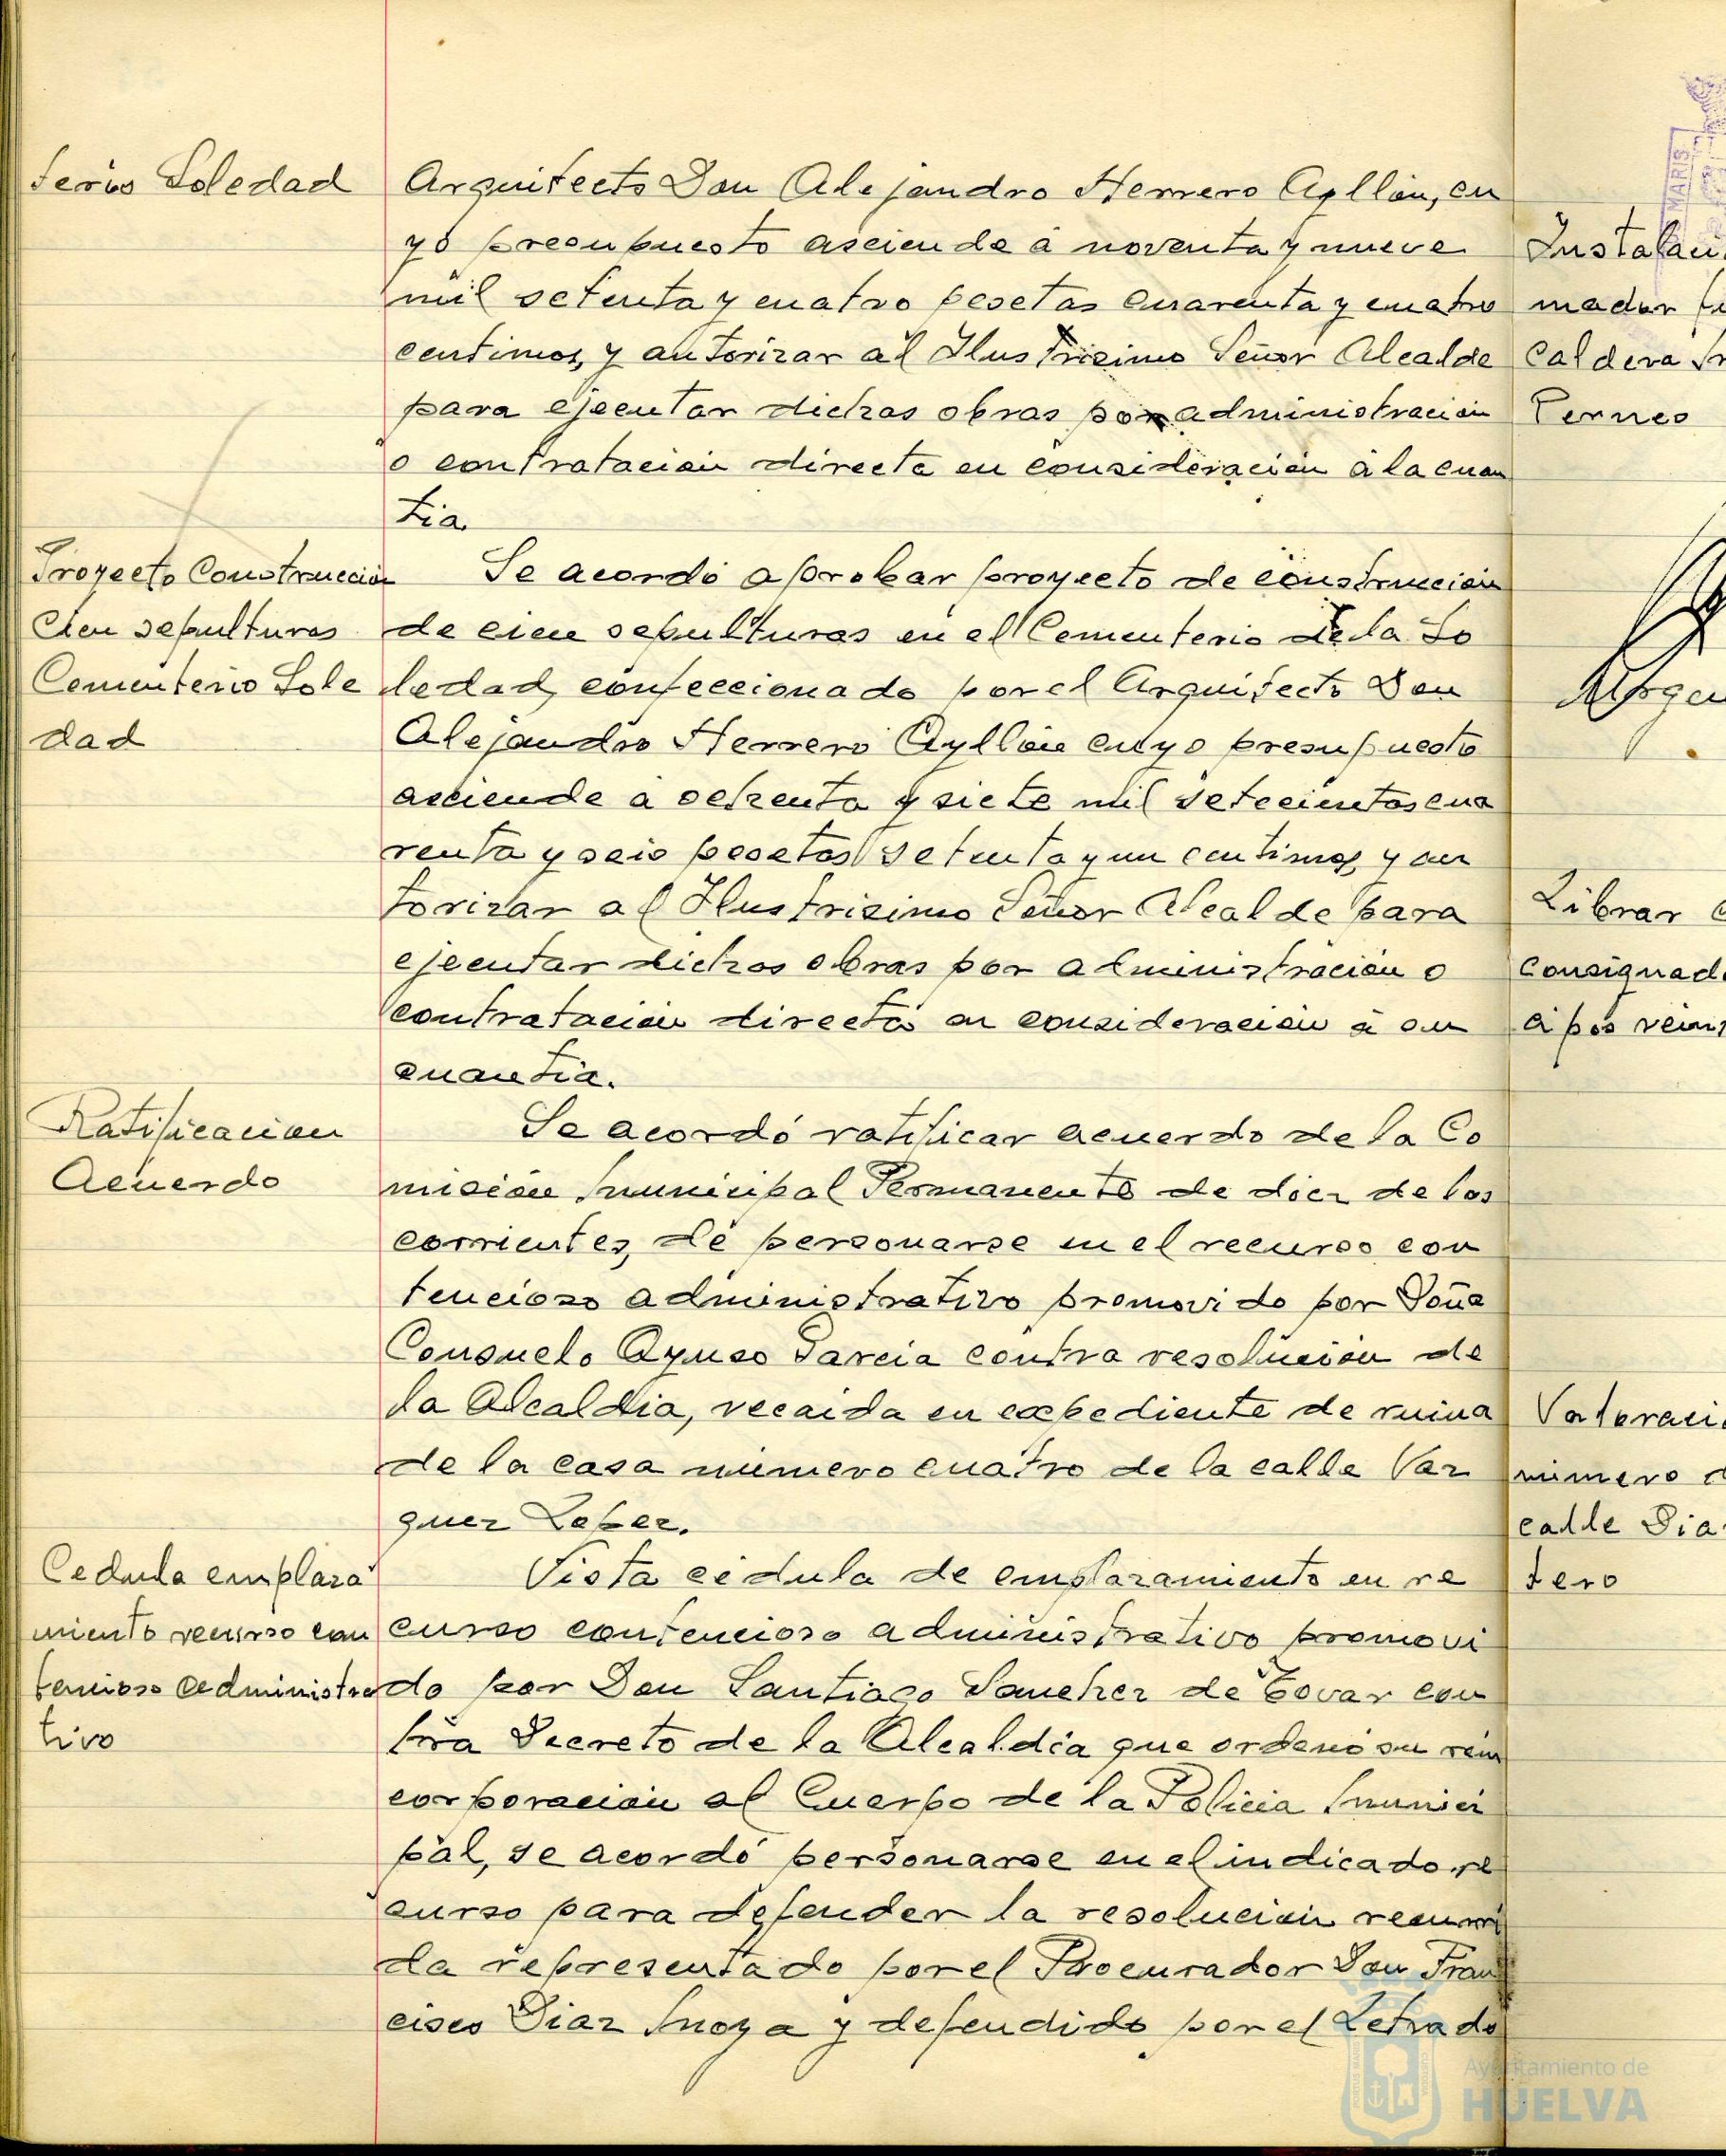 terio Soledad
Arquitecto Don Alejandro Herrero Ayllón, cu
yo presupuesto asciende á noventa y nueve
mil setenta y cuatro pesetas cuarenta y cuatro
centimos, y autorizar al Ilustrisimo Señor Alcalde
para ejecutar dichas obras por administración
o contratación directa en consideración á la cuan
tia.
Proyecto Construcción
Cien sepulturas
Cementerio Sole
dad
Se acordó aprobar proyecto de construcción
de cien sepulturas en el Cementerio de la So
ledad, confeccionado por el Arquitecto Don
Alejandro Herrero Ayllón cuyo presupuesto
asciende a ochenta y siete mil setecientas cua
renta y seis pesetas setenta y un centimos, y au
torizar al Ilustrisimo Señor Alcalde para
ejecutar dichas obras por administración o
contratación directa en consideración á su
cuantia.
Ratificacion
Acuerdo
Se acordó ratificar acuerdo de la Co
misión Municipal Permanente de diez de los
corrientes, de personarse en el recurso con
tencioso administrativo promovido por Doña
Consuelo Ayuso Garcia contra resolución de
la Alcaldia, recaida en expediente de ruina
de la casa número cuatro de la calle Vaz
quez Lopez.
Cedula emplaza
miento recurso con
tencioso administra
tivo
Vista cédula de emplazamiento en re
curso contencioso administrativo promovi
do por Don Santiago Sanchez de Tovar con
tra Decreto de la Alcaldia que ordenó su rein
corporación al Cuerpo de la Policia Munici
pal, se acordó personarse en el indicado re
curso para defender la resolución recurri
da representado por el Procurador Don Fran
cisco Diaz Moya y defendido por el Letrado
Instalaci
mador
Caldera
Perneo
Librar
consignada
Valoraci
número
calle Dia
tero
MARIS
Ayuntamiento de
HUELVA